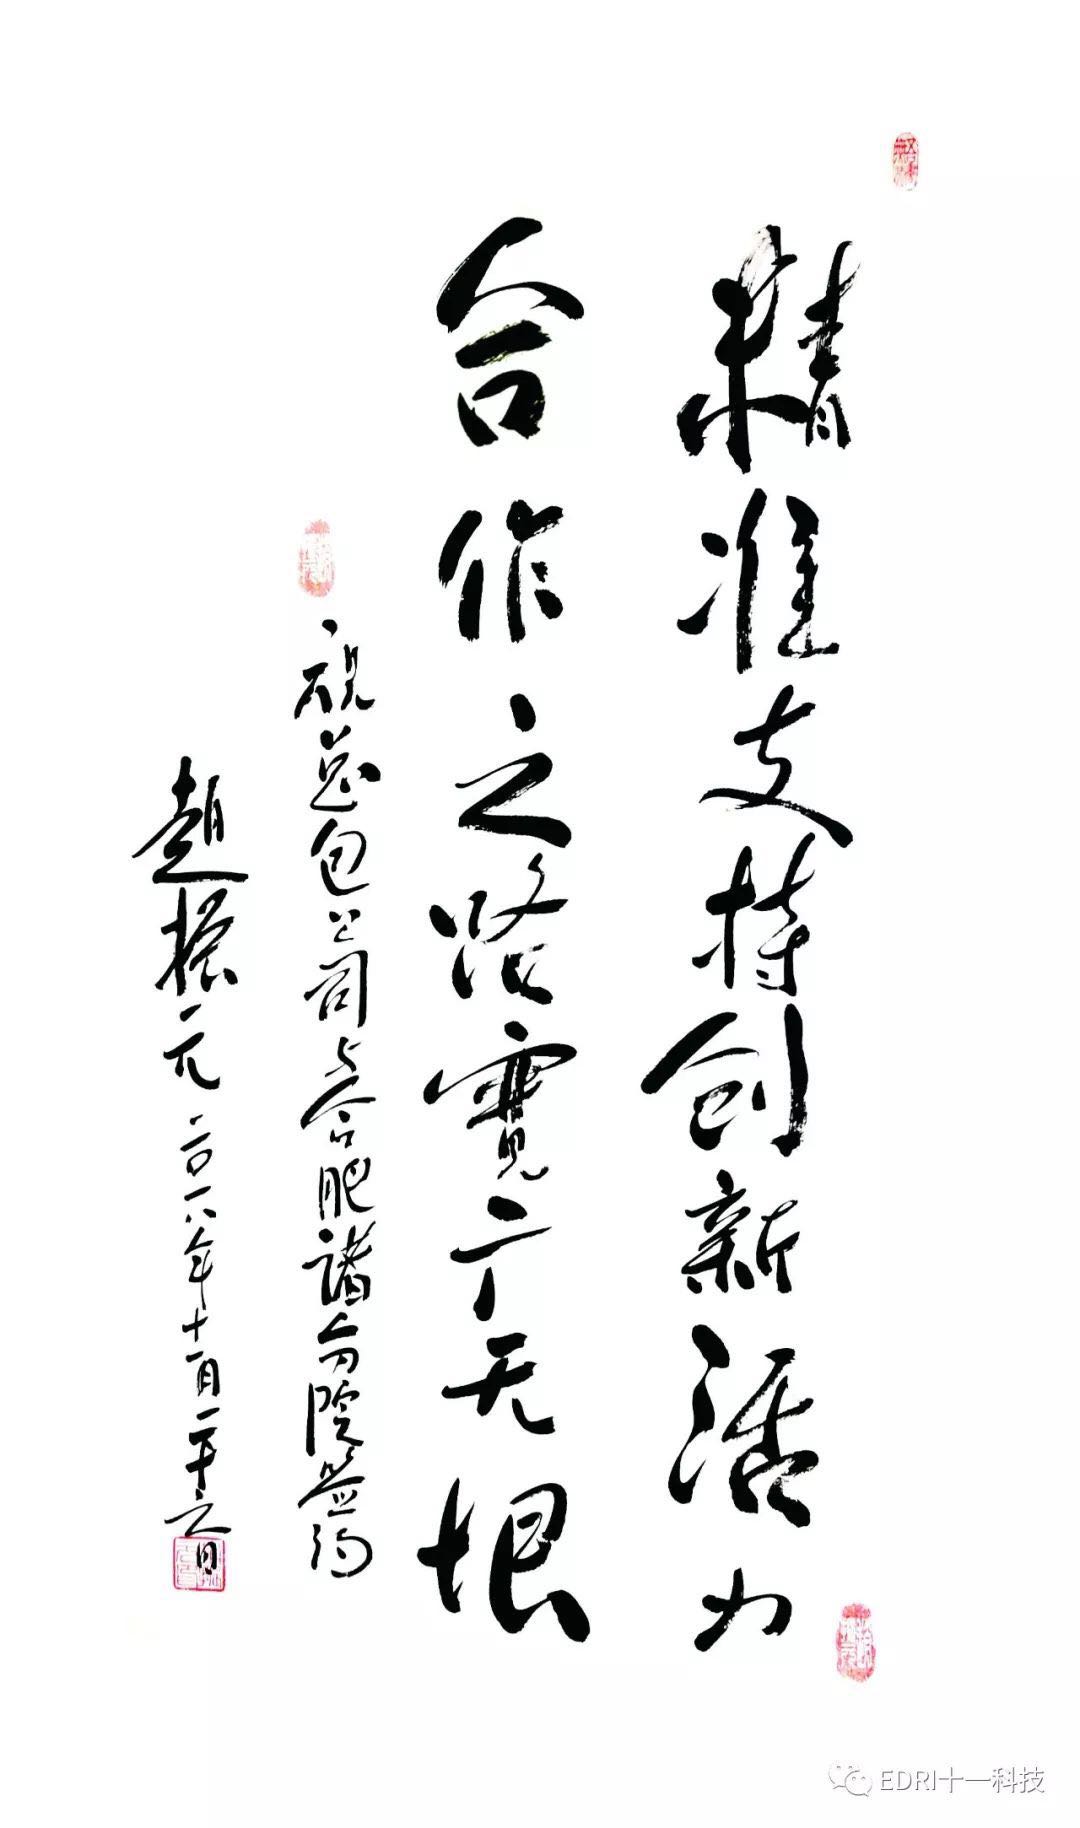 精准支持创新活力
合作之路寬广无垠
祝总包公司与合肥諸分院签约
趙振元 二〇一八年十一月二十六日
EDRI十一科技